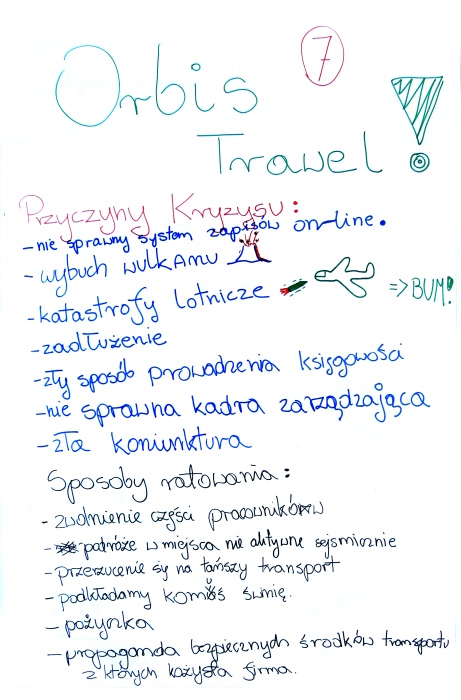 7
Orbis
Trawel!
Przyczyny Kryzysu:
- nie sprawny system zapisów on-line.
- wybuch wulkanu
- katastrofy lotnicze => BUM!
- zadłużenie
- zły sposób prowadzenia księgowości
- nie sprawna kadra zarządzająca
- zła koniunktura
Sposoby ratowania:
- zwolnienie części pracowników
- podróże w miejsca nie aktywne sejsmicznie
- przerzucenie się na tańszy transport
- podkładamy komuś świnię.
- pożyczka
- propaganda bezpiecznych środków transportu
z których kożysta firma.